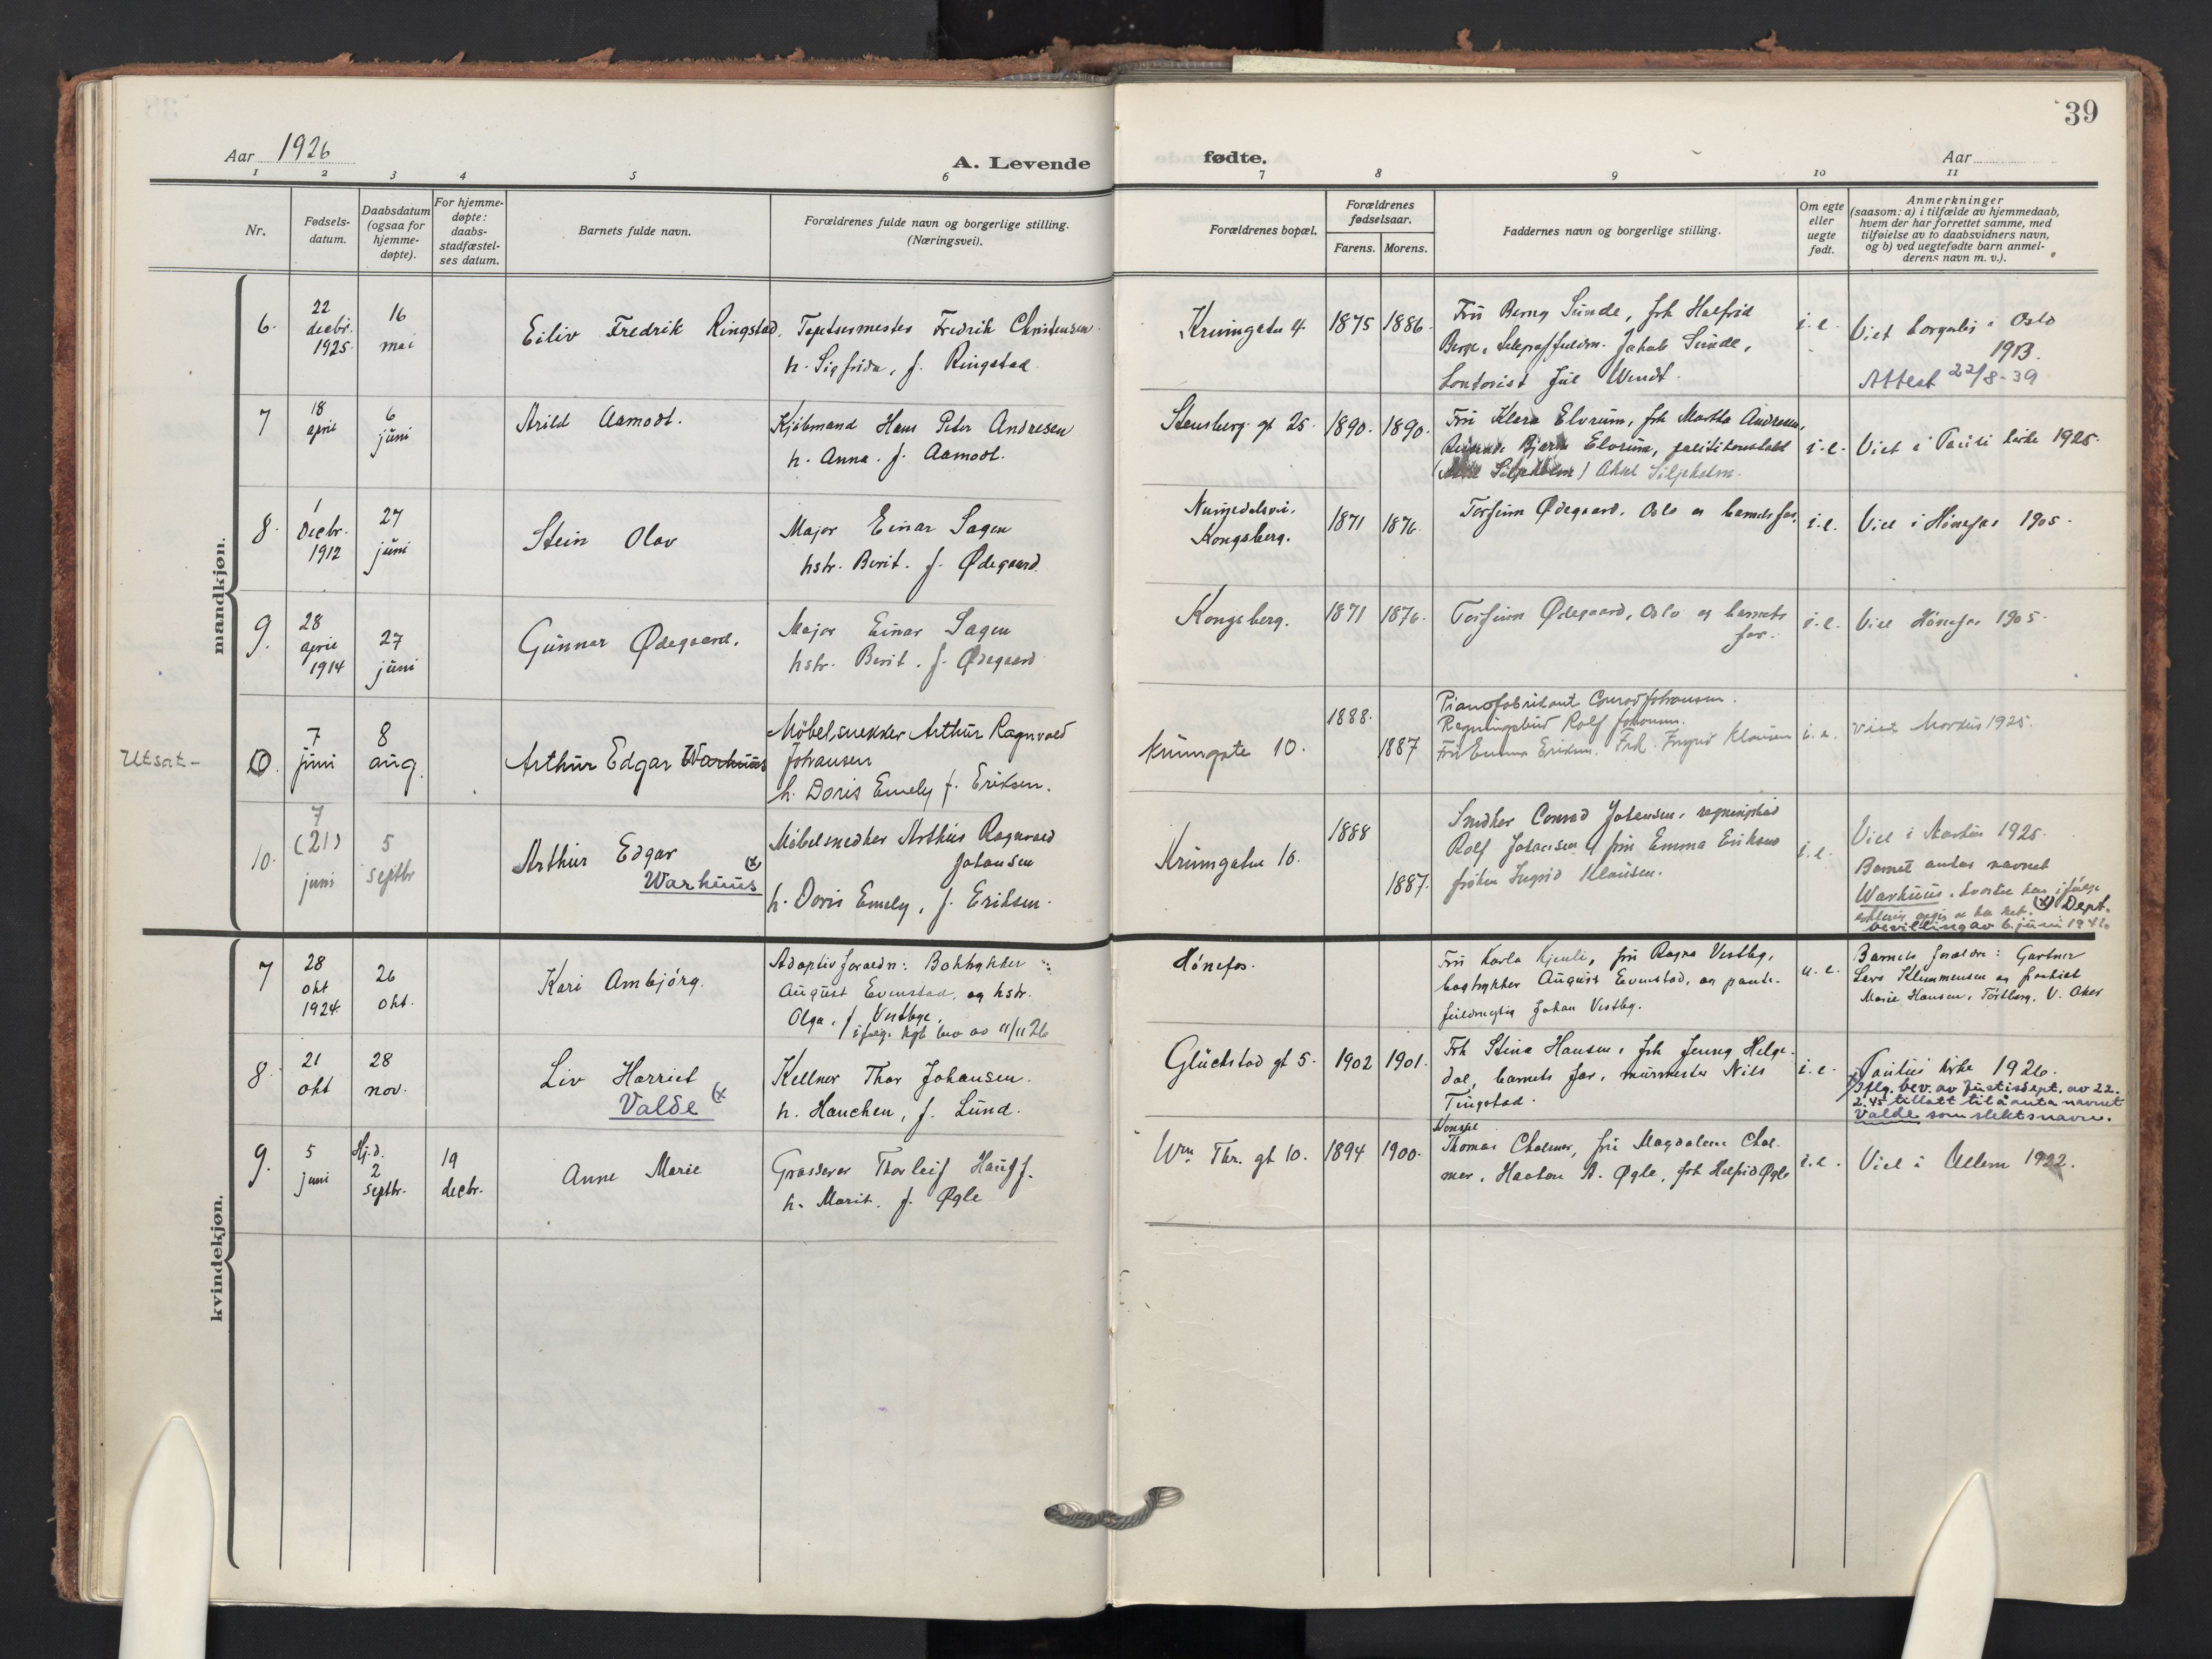 39
Aar 1926
A. Levende
fødte.
Aar
1 2 3 4 5 6
7 8 9 10 11
Nr.
Fødsels-
datum.
Daabsdatum
(ogsaa for
hjemme-
døpte).
For hjemme-
døpte:
daabs-
stadfæstel-
ses datum.
Barnets fulde navn.
Forældrenes fulde navn og borgerlige stilling.
(Næringsvei).
Forældrenes bopæl.
Forældrenes
fødselsaar.
Farens. Morens.
Faddernes navn og borgerlige stilling.
Om egte
eller
uegte
født.
Anmerkninger
(saasom: a) i tilfælde av hjemmedaab,
hvem der har forrettet samme, med
tilføielse av to daabsvidners navn,
og b) ved uegtefødte barn anmel-
derens navn m. v.).
mandkjøn.
6.
22
decbr.
1925.
16
mai
Eiliv Fredrik Ringstad.
Tapetsermester Fredrik Christensen
h. Sigfrida, f. Ringstad.
Krumgaten 4.
1875 1886.
Fru Berny Sunde, frk Halfrid
Berge, Jakob Sunde,
Kontorist Jul Wendt.
i. e.
Viet borgerlig i Oslo
1913.
Attest 22/8-39
7
18
april
6
juni
Arild Aamodt.
Kjøbmand Hans Peter Andresen
h. Anna. f. Aamodt.
Stensberg. gt 25.
1890. 1890.
Fru Klara Elvrum, frk Martha Andresen,
Bjarne Elvrum,
Aksel Siljeholm.
i. e.
Viet i Pauli kirke 1925.
8.
1
Decbr.
1912
27
juni
Stein Olav
Major Einar Sagen
hstr. Berit. f. Ødegaard.
Numedalsvei.
Kongsberg.
1871 1876.
Torfinn Ødegaard, Oslo og barnets far.
i. e.
Viet i Hønefos 1905.
9.
28
april
1914
27
juni
Gunnar Ødegaard.
Major Einar Sagen
hstr. Berit. f. Ødegaard
Kongsberg.
1871 1876.
Torfinn Ødegaard, Oslo og barnets
far.
i. e.
Viet Hønefos 1905.
Utsat-
10.
7
juni
8
aug.
Arthur Edgar Warhuus
Møbelsnekker Arthur Ragnvald
Johansen
h. Doris Emely f. Eriksen.
Krumgate 10.
1888.
1887
Pianofabrikant Conrad Johansen.
Regningsbud Rolf Johansen.
Fru Emma Eriksen. Frk. Ingrid Klausen
i. e.
Viet Markus 1925.
10.
7
(21)
juni
5
septbr
Arthur Edgar (x)
Warhuus
Møbelsnedker Arthur Ragnvald
Johansen
h. Doris Emely, f. Eriksen.
Krumgaten 10.
1888
1887.
Snedker Conrad Johansen, regningsbud
Rolf Johansen, fru Emma Eriksen
frøken Ingrid Klausen.
i. e.
Viet i Markus 1925.
Barnet antar navnet
Warhuus.
(x) Dept.
bevilling av 6. juni 1941.
kvindekjøn.
7
28
okt
1924.
26
okt.
Kari Ambjørg.
Adoptivforældre: Boktrykker
August Evenstad, og hstr.
Olga, f. Vestbye.
ifølge kgl. brev av 11/11 26
Hønefos.
Fru Karla Kjenli, fru Ragna Vestby,
boktrykker August Evenstad, og
fuldmegtig Johan Vestby.
u. e.
Barnets foreldre: Gartner
Lars Klemmensen og
Marie Hansen, Torshov, V. Aker
8.
21
okt
28
nov.
Liv Harriet
Valde (x
Kellner Thor Johansen.
h. Hanchen, f. Lund.
Glückstad gt 5.
1902 1901.
Frk Stina Hansen, frk Jenny Helge-
dal, barnets far, murmester Nils
Tingstad.
i. e.
Paulus kirke 1926.
x) Iflg. bev. av Justisdept. av 22.
2.45 tillatt til å anta navnet
Valde som slektsnavn.
9.
5
juni
Hj.d.
2
septbr.
19
decbr.
Anne Marie
Grosserer Thorleif Hauff.
h. Marit. f. Øgle
Wm Thr. gt 10.
1894 1900.
Konsul
Thomas Chalmer, fru Magdalene Chal-
mer, Haakon A. Øgle, frk Halfrid Øgle
i. e.
Viet i Ullern 1922.